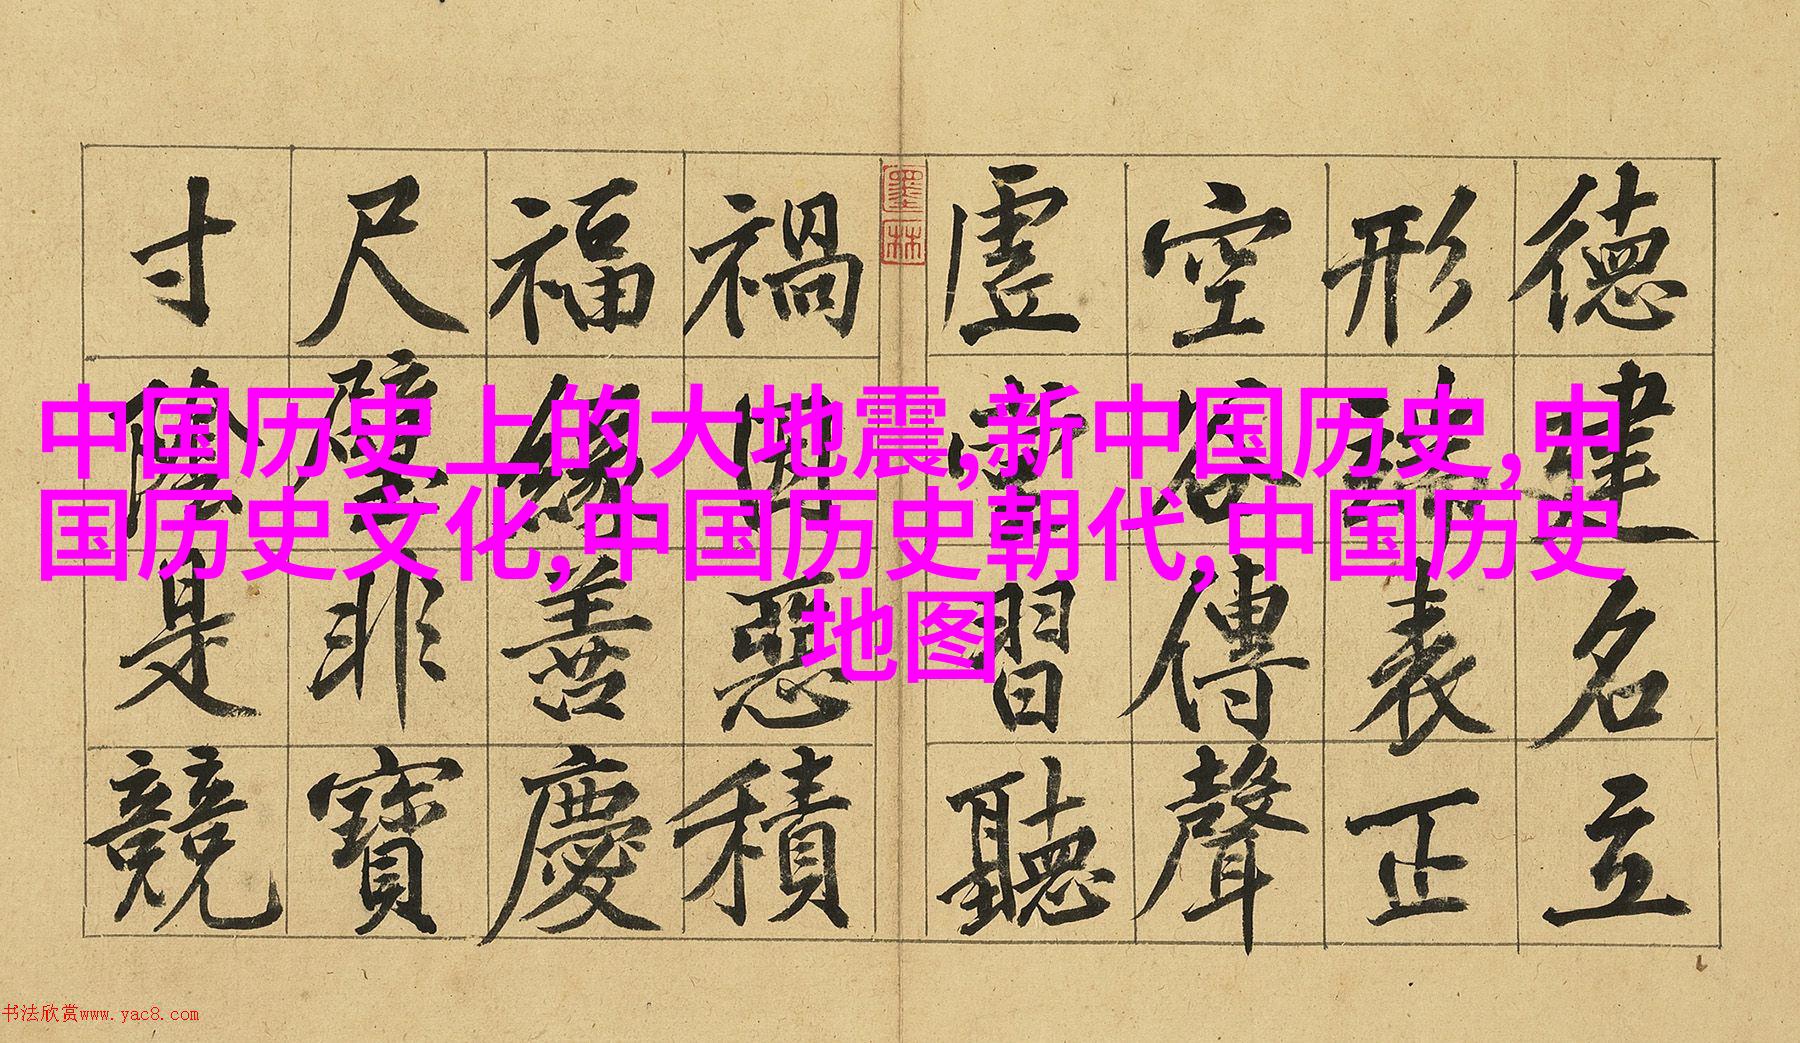 德建名立
形端表正
空谷傳聲
虛堂習聽
墨林
禍因惡積
福緣善慶
尺璧非寶
寸陰是競
中国历史上的大地震,新中国历史,中
国历史文化,中国历史朝代,中国历史
地图
书法欣赏www.yac8.com